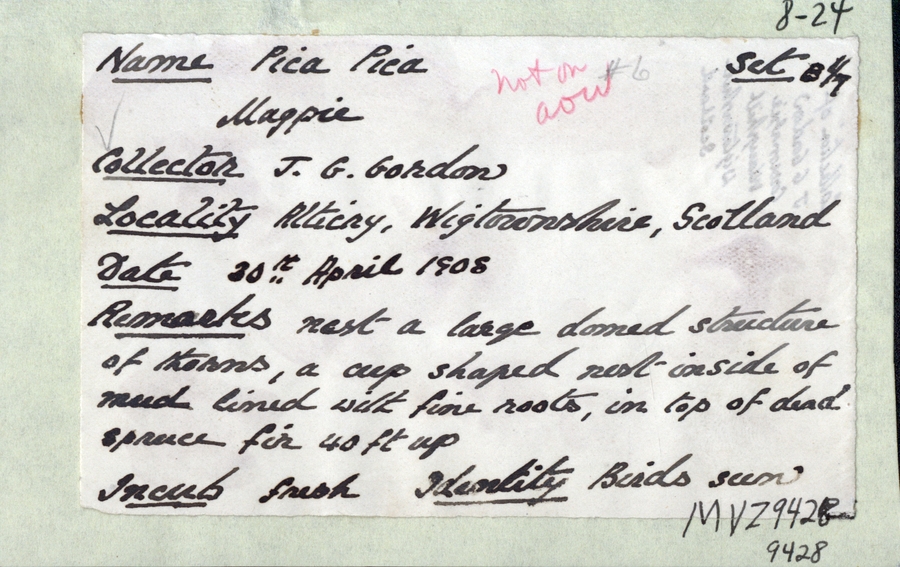 8-24
Name Pica Pica Set B 4/7
Magpie
not on #6
aou
Collector J. G. Gordon
Locality Alticry, Wigtownshire, Scotland
Date 30th April 1908
Remarks nest a large domed structure
of thorns, a cup shaped nest inside of
mud lined with fine roots, in top of dead
spruce fir 40 ft up
Incub fresh Identity Birds seen
MVZ9428
9428